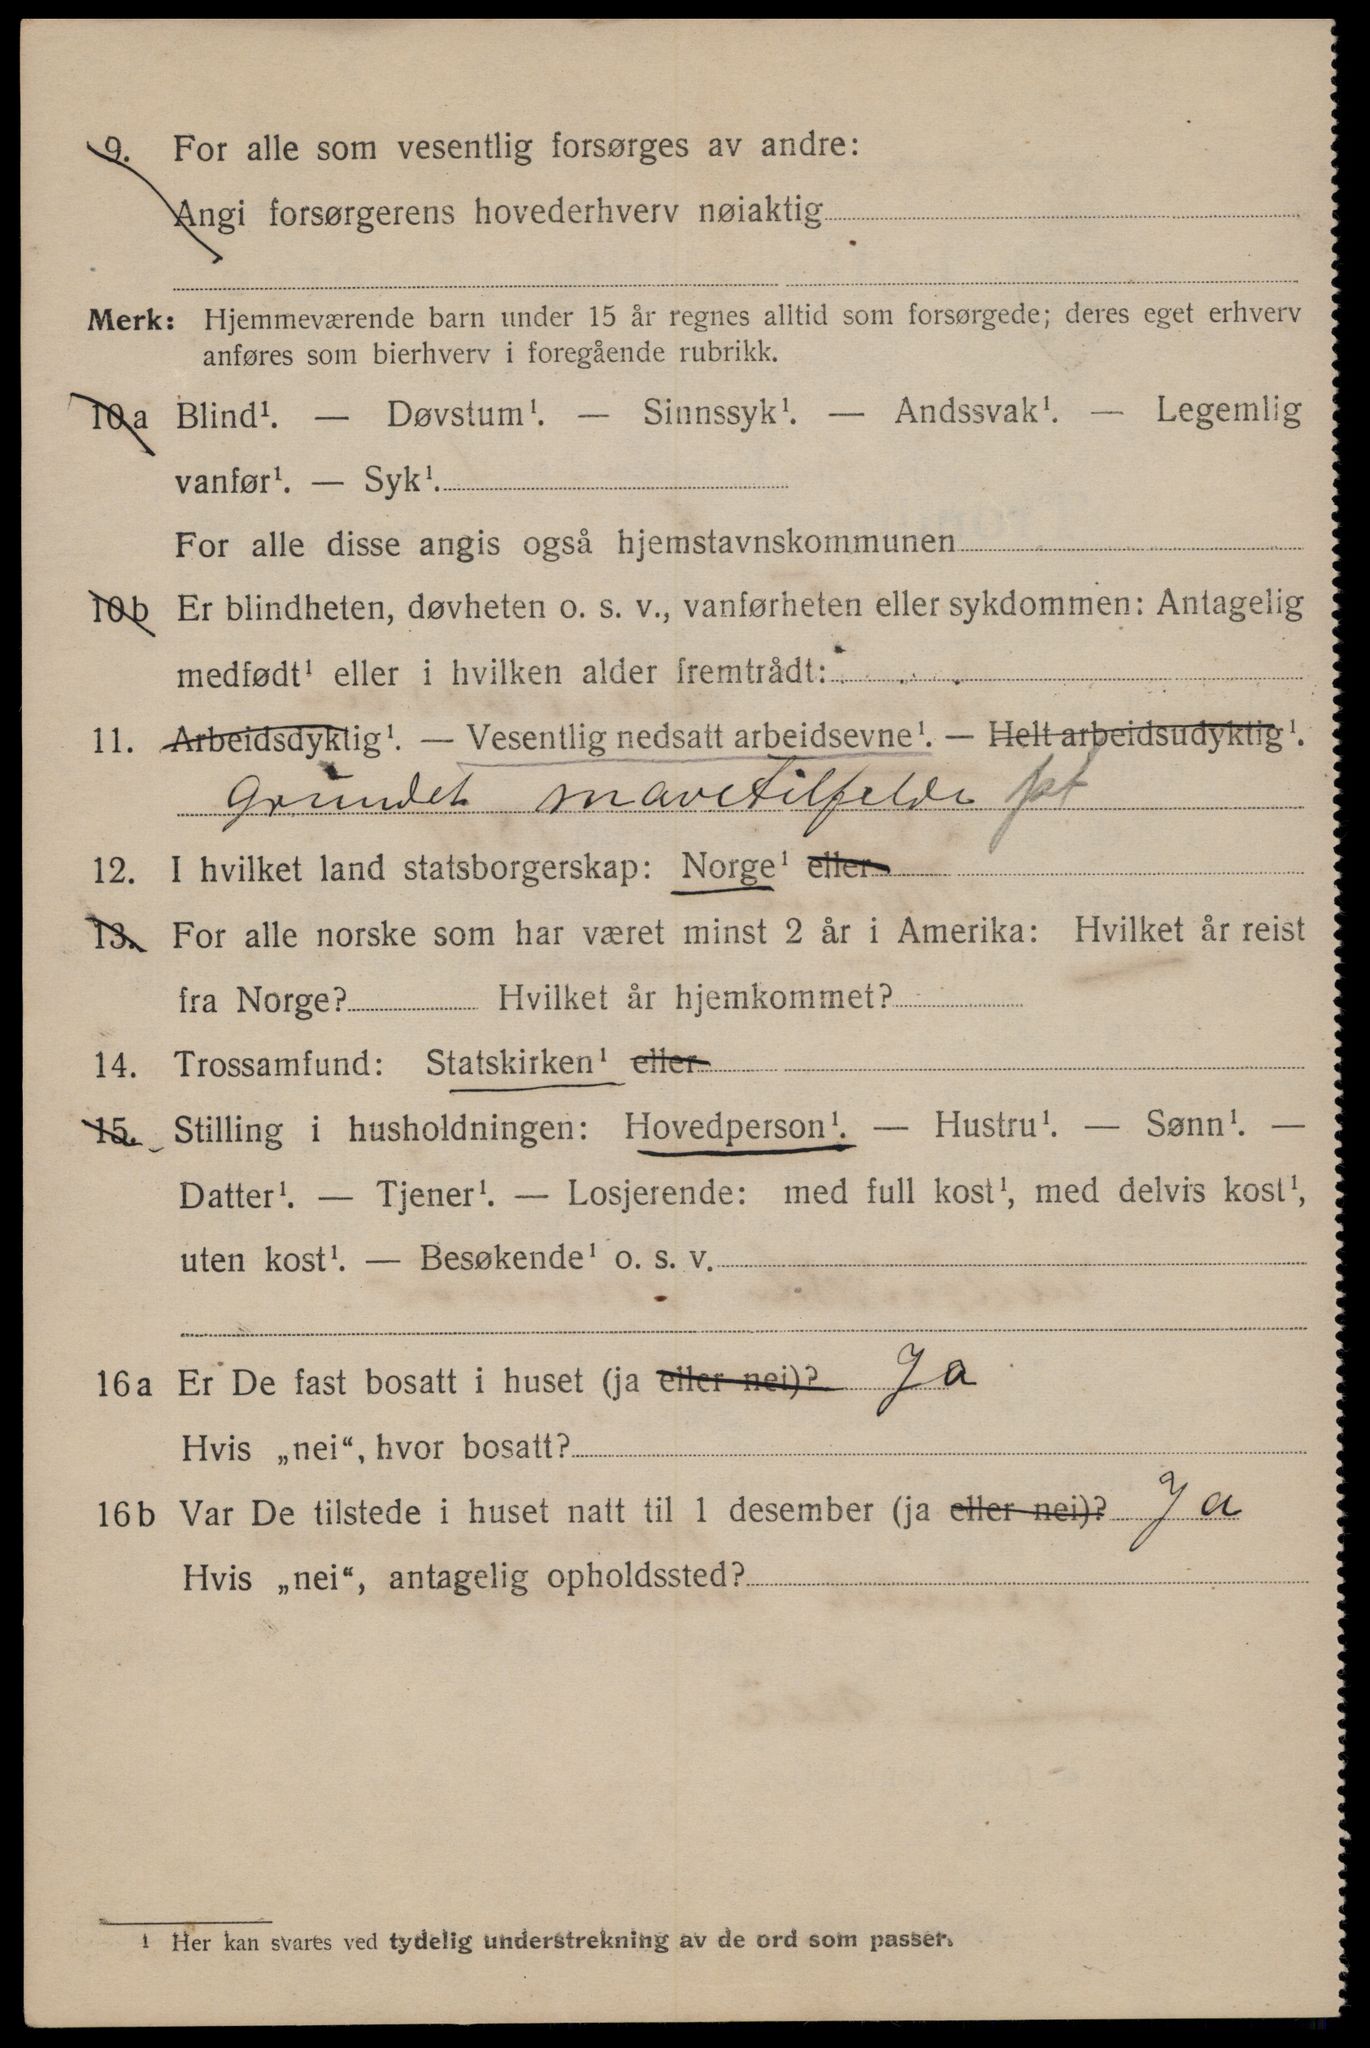 9. For alle som vesentlig forsørges av andre:
Angi forsørgerens hovederhverv nøiaktig
Merk: Hjemmeværende barn under 15 år regnes alltid som forsørgede; deres eget erhverv
anføres som bierhverv i foregående rubrikk.
10 a Blind¹. — Døvstum¹. — Sinnssyk¹. — Andssvak¹. — Legemlig
vanfør¹. — Syk¹.
For alle disse angis også hjemstavnskommunen
10 b Er blindheten, døvheten o. s. v., vanførheten eller sykdommen: Antagelig
medfødt¹ eller i hvilken alder fremtrådt:
11. Arbeidsdyktig¹. — Vesentlig nedsatt arbeidsevne¹. — Helt arbeidsudyktig¹.
Grundet mavetilfelde
12. I hvilket land statsborgerskap: Norge¹ eller
13. For alle norske som har været minst 2 år i Amerika: Hvilket år reist
fra Norge? Hvilket år hjemkommet?
14. Trossamfund: Statskirken¹ eller
15. Stilling i husholdningen: Hovedperson¹. — Hustru¹. — Sønn¹. —
Datter¹. — Tjener¹. — Losjerende: med full kost¹, med delvis kost¹,
uten kost¹. — Besøkende¹ o. s. v.
16 a Er De fast bosatt i huset (ja eller nei)? Ja
Hvis „nei“, hvor bosatt?
16 b Var De tilstede i huset natt til 1 desember (ja eller nei)? Ja
Hvis „nei“, antagelig opholdssted?
¹ Her kan svares ved tydelig understrekning av de ord som passer.